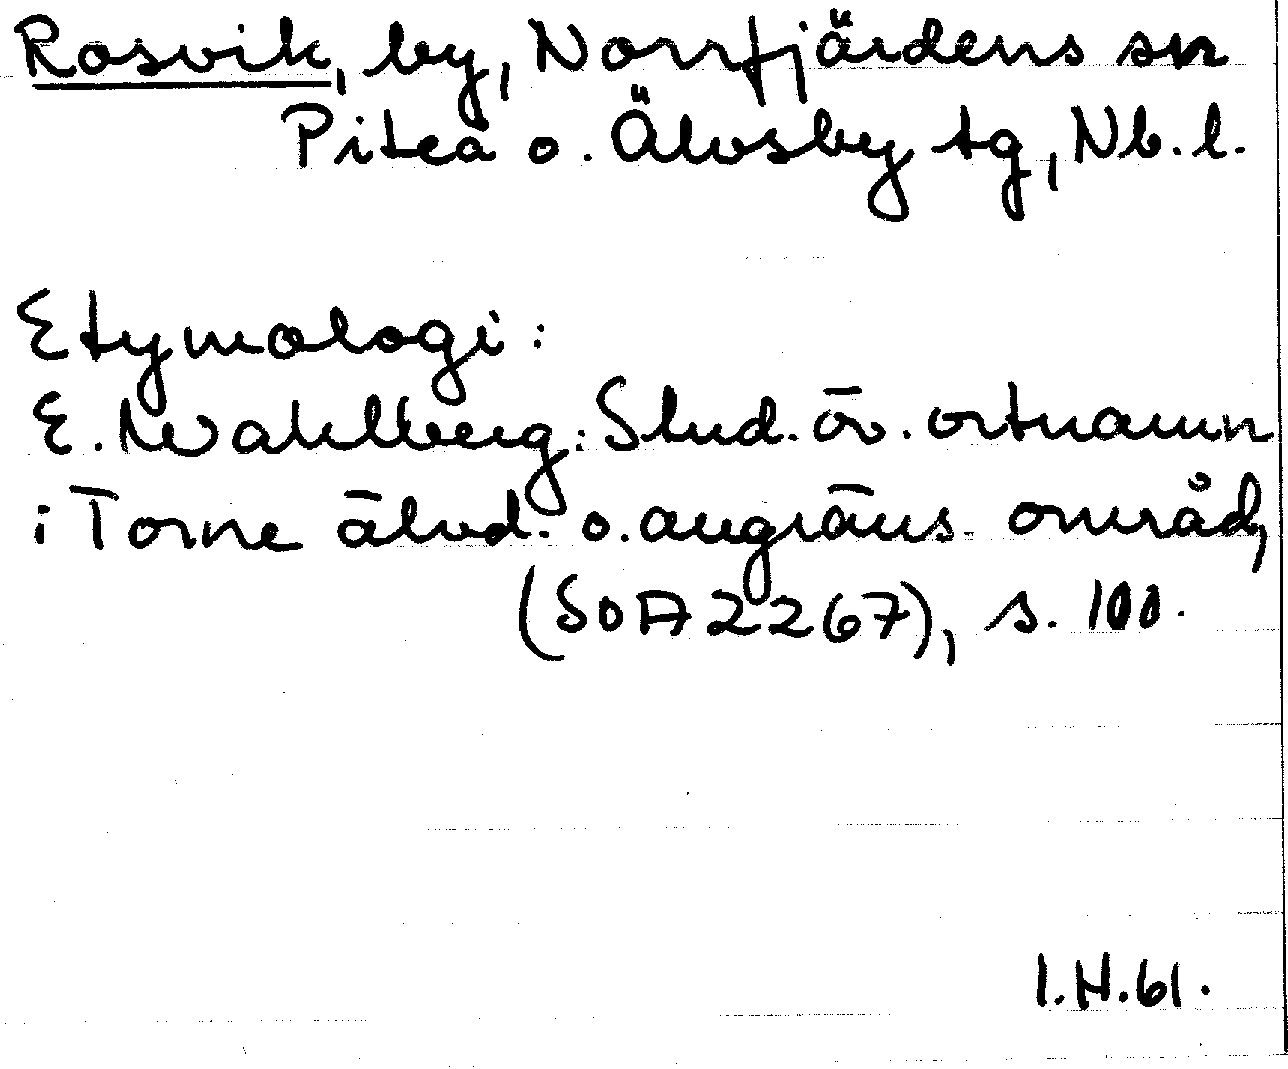 Rosvik, by, Norrfjärdens sn
Piteå o. Älvsby tg, Nb. l.
Etymologi:
E. Wahlberg: Stud. öv. ortnamn
i Torne älvd. o. angräns. områd,
(SOA 2267), s. 100.
I.H.61.